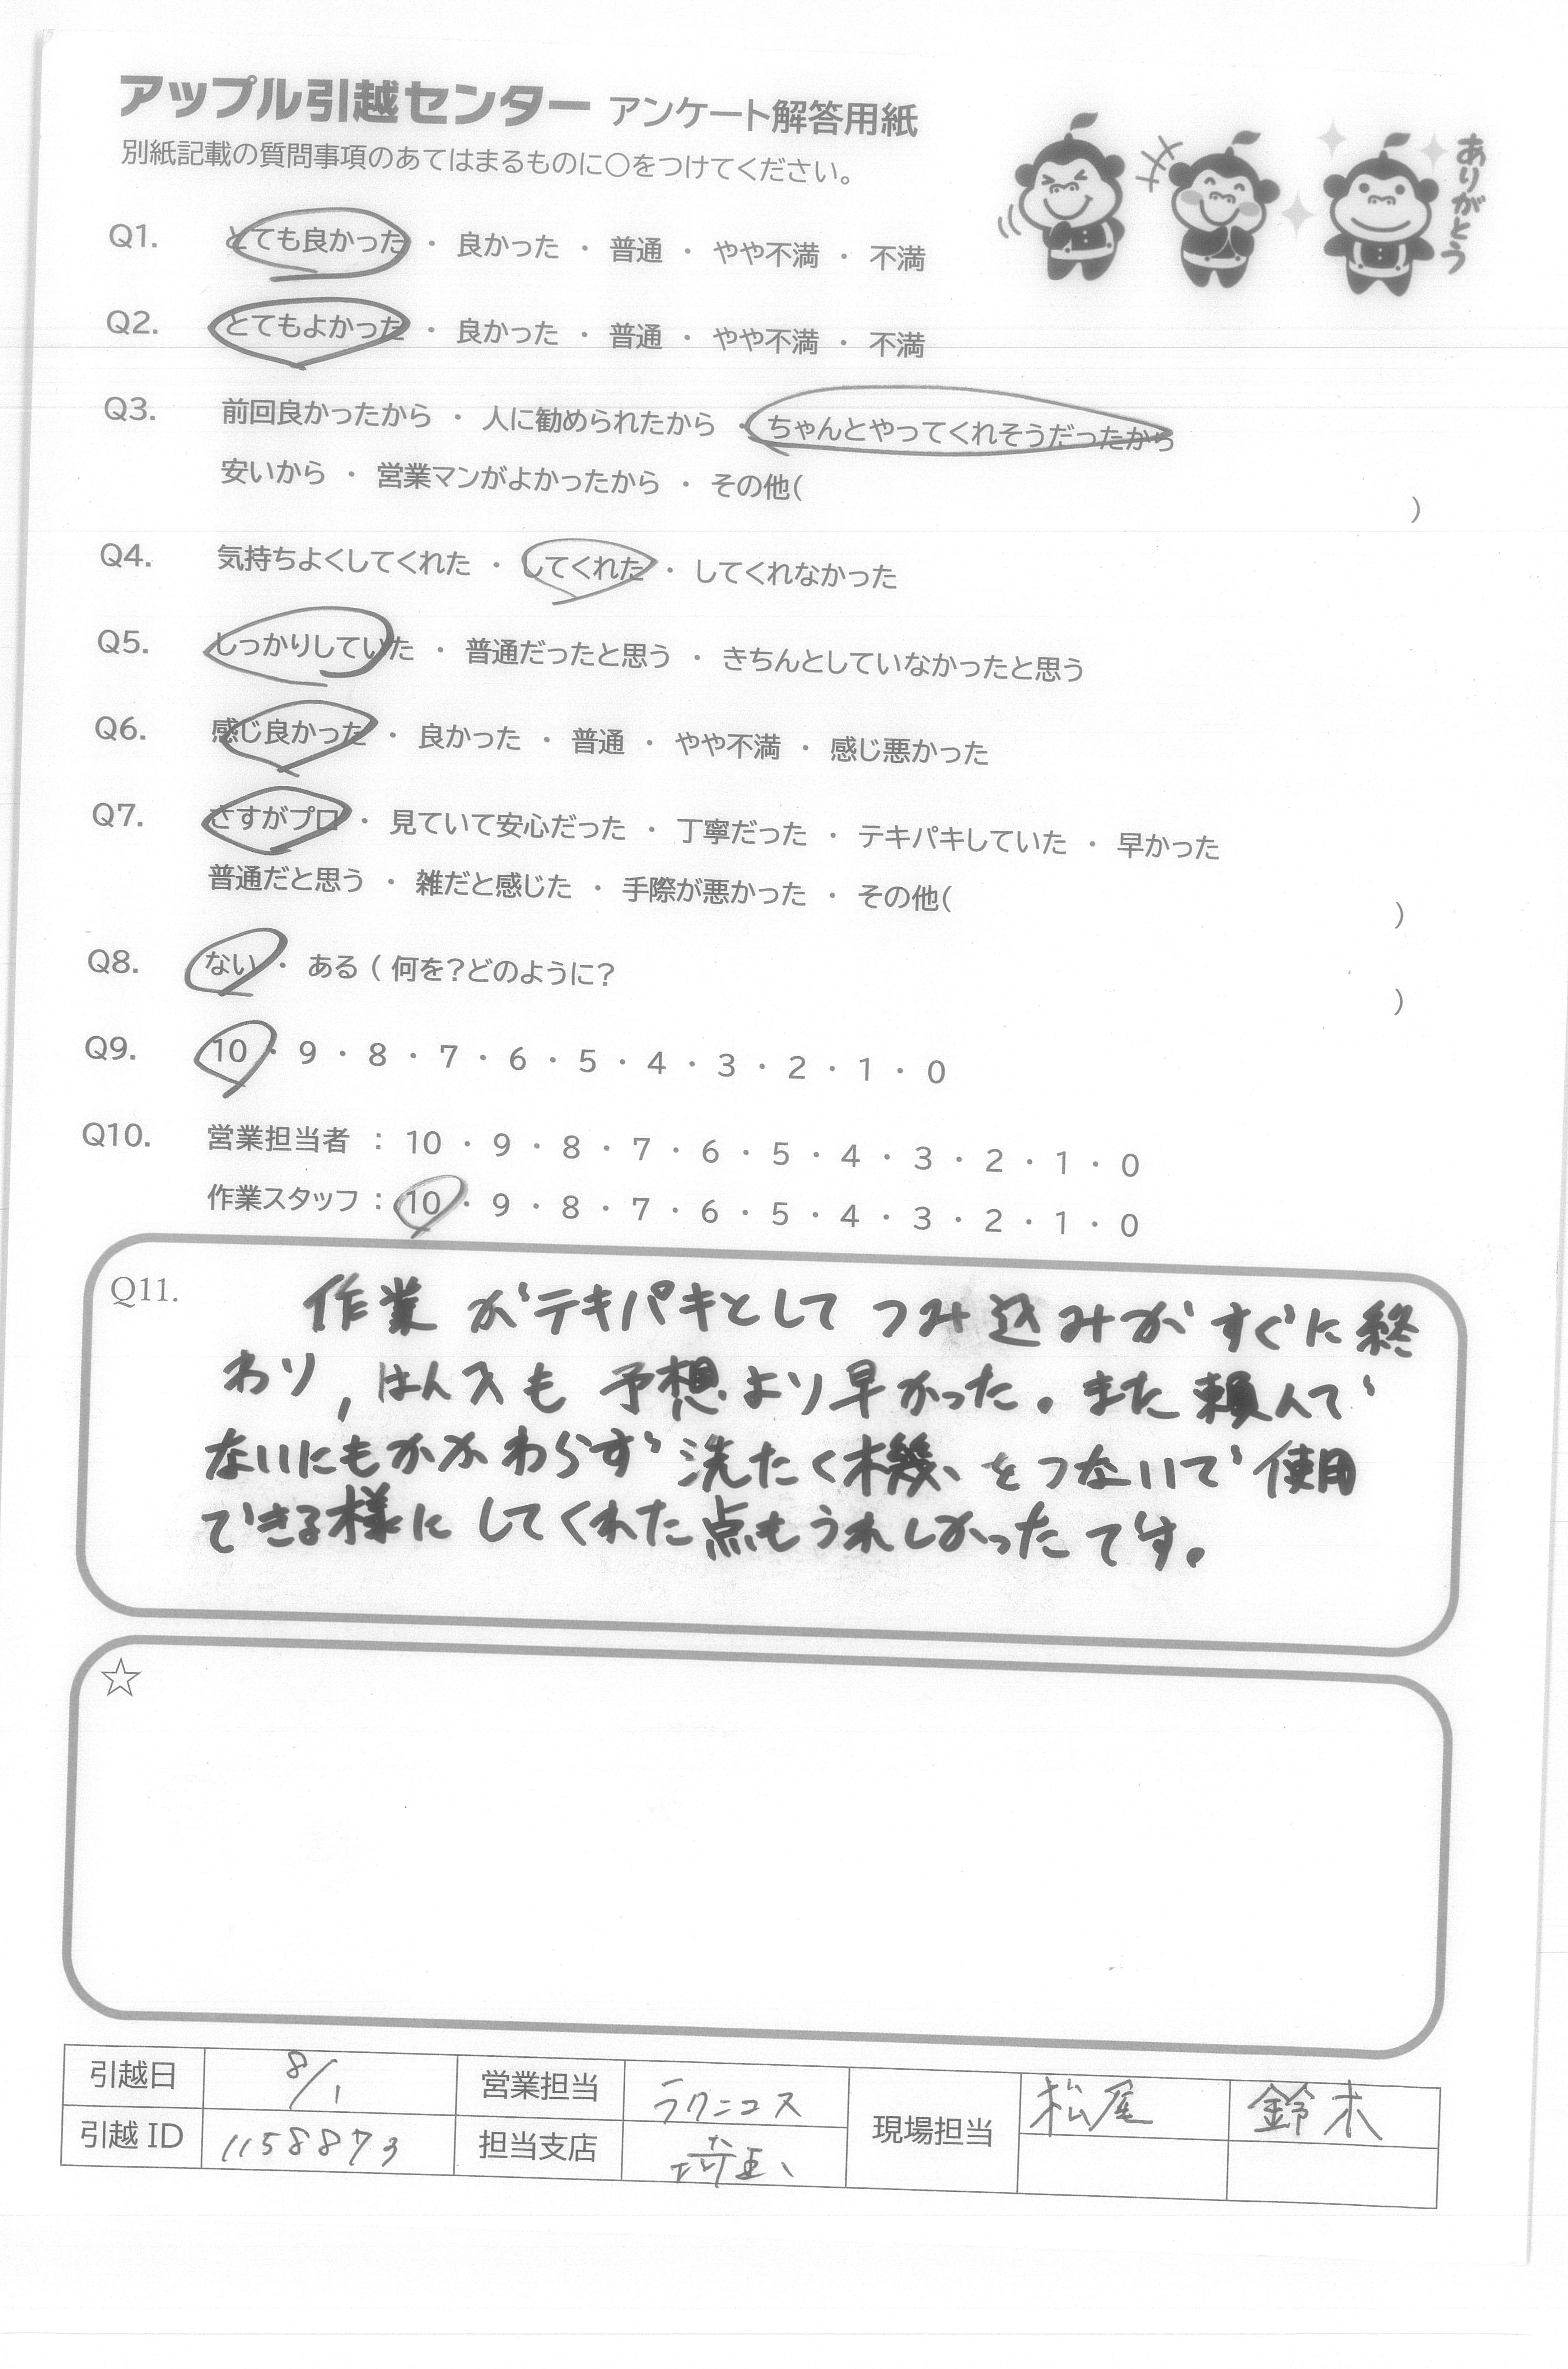 アップル引越センター アンケート解答用紙
別紙記載の質問事項のあてはまるものに○をつけてください。
ありがとう
Q1. とても良かった ・ 良かった ・ 普通 ・ やや不満 ・ 不満
Q2. とてもよかった ・ 良かった ・ 普通 ・ やや不満 ・ 不満
Q3. 前回良かったから ・ 人に勧められたから ・ ちゃんとやってくれそうだったから
安いから ・ 営業マンがよかったから ・ その他( )
Q4. 気持ちよくしてくれた ・ してくれた ・ してくれなかった
Q5. しっかりしていた ・ 普通だったと思う ・ きちんとしていなかったと思う
Q6. 感じ良かった ・ 良かった ・ 普通 ・ やや不満 ・ 感じ悪かった
Q7. さすがプロ ・ 見ていて安心だった ・ 丁寧だった ・ テキパキしていた ・ 早かった
普通だと思う ・ 雑だと感じた ・ 手際が悪かった ・ その他( )
Q8. ない ・ ある ( 何を?どのように? )
Q9. 10 ・ 9 ・ 8 ・ 7 ・ 6 ・ 5 ・ 4 ・ 3 ・ 2 ・ 1 ・ 0
Q10. 営業担当者 : 10 ・ 9 ・ 8 ・ 7 ・ 6 ・ 5 ・ 4 ・ 3 ・ 2 ・ 1 ・ 0
作業スタッフ : 10 ・ 9 ・ 8 ・ 7 ・ 6 ・ 5 ・ 4 ・ 3 ・ 2 ・ 1 ・ 0
Q11. 作業がテキパキとしてつみ込みがすぐに終
わり,はん入も予想より早かった。また頼んで
ないにもかかわらず洗たく機をつないで使用
できる様にしてくれた点もうれしかったです。
☆
引越日 8/1 営業担当 ラクニコス 現場担当 松尾 鈴木
引越ID 1158873 担当支店 埼玉